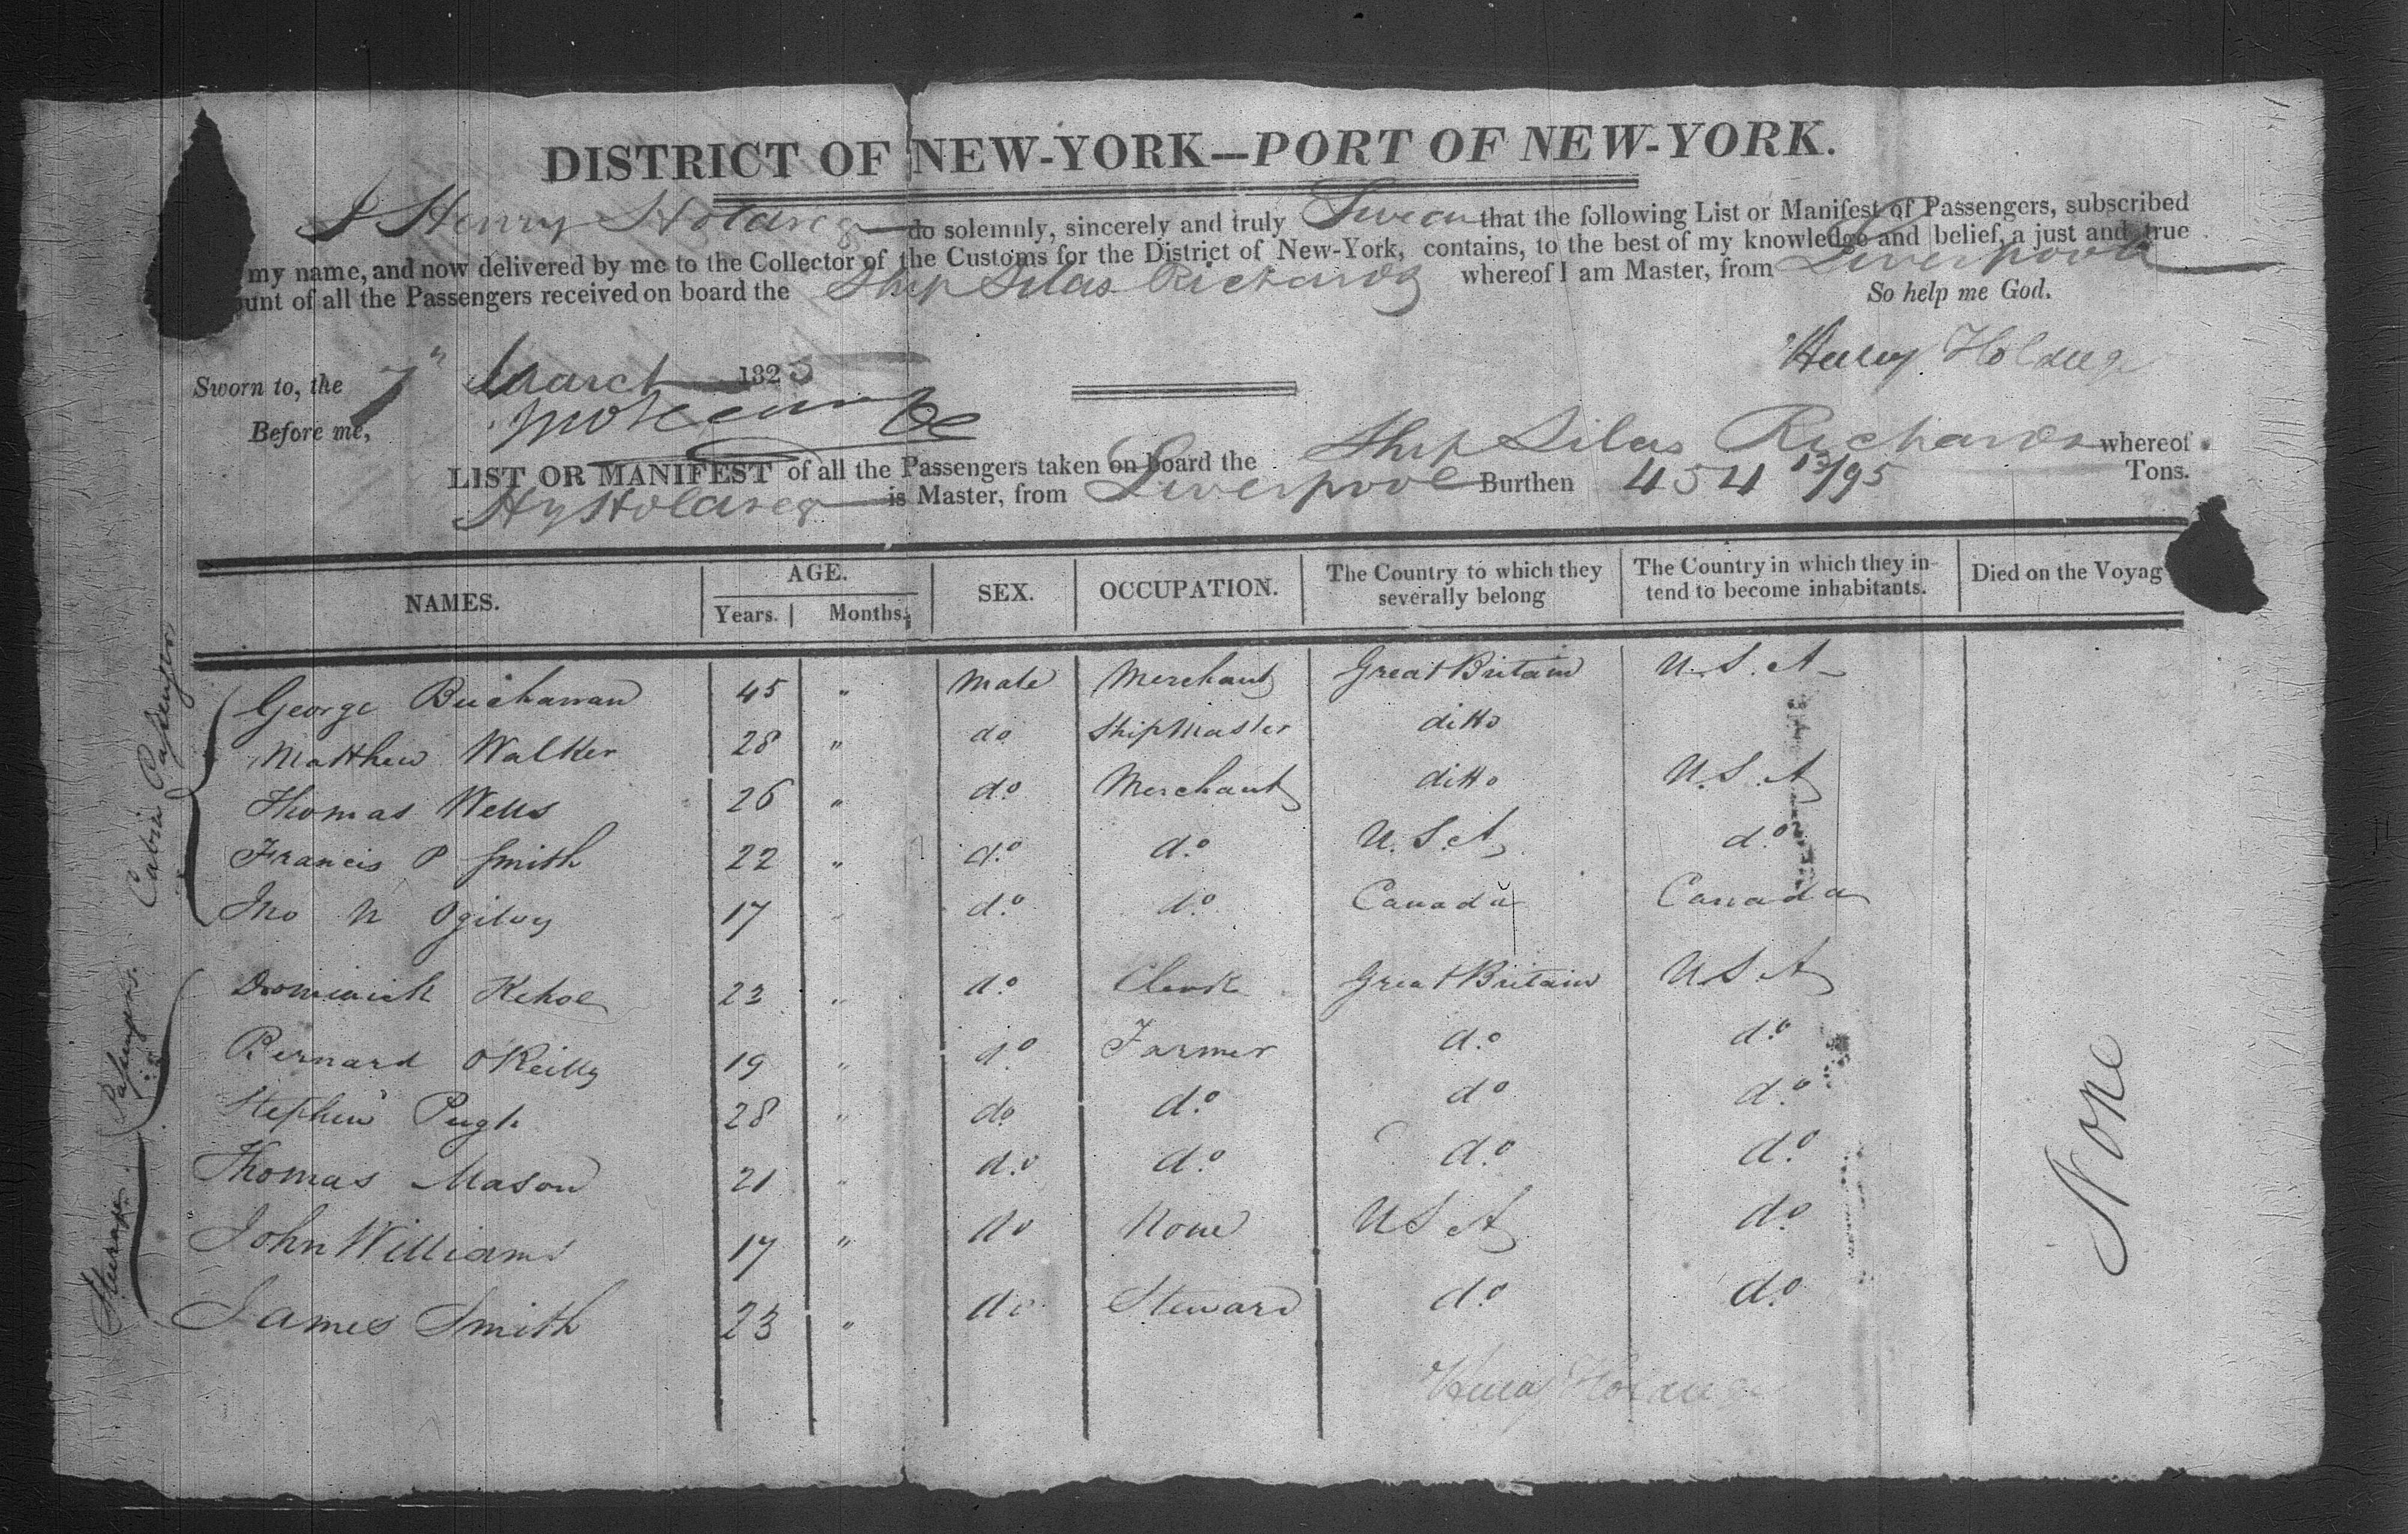 DISTRICT OF NEW-YORK—PORT OF NEW-YORK.
I Henry Holdrege do solemnly, sincerely and truly Swear that the following List or Manifest of Passengers, subscribed
my name, and now delivered by me to the Collector of the Customs for the District of New-York, contains, to the best of my knowledge and belief, a just and true
ount of all the Passengers received on board the Ship Silas Richards whereof I am Master, from Liverpool
So help me God.
Henry Holdrege
Sworn to, the 7" March 1825
Before me,
LIST OR MANIFEST of all the Passengers taken on board the Ship Silas Richards whereof
Hy Holdrege is Master, from Liverpool Burthen 454 /95 Tons.
NAMES. AGE. Years. Months. SEX. OCCUPATION. The Country to which they severally belong The Country in which they intend to become inhabitants. Died on the Voyag
Cabin Passengers
George Buchanan 45 " Male Merchant Great Britain U.S.A
Matthew Walker 28 " do Ship Master ditto
Thomas Wells 26 " do Merchant ditto U.S.A
Francis P Smith 22 " do do U.S.A do
Jno N Ogilvy 17 " do do Canada Canada
Steerage Passengers.
Dominick Kehoe 23 " do Clerk Great Britain U S A
Bernard OReilly 19 " do Farmer do do
Stephen Pugh 28 " do do do do
Thomas Mason 21 " do do do do
John Williams 17 " do None U S A do
James Smith 23 " do Steward do do
None
Henry Holdrege